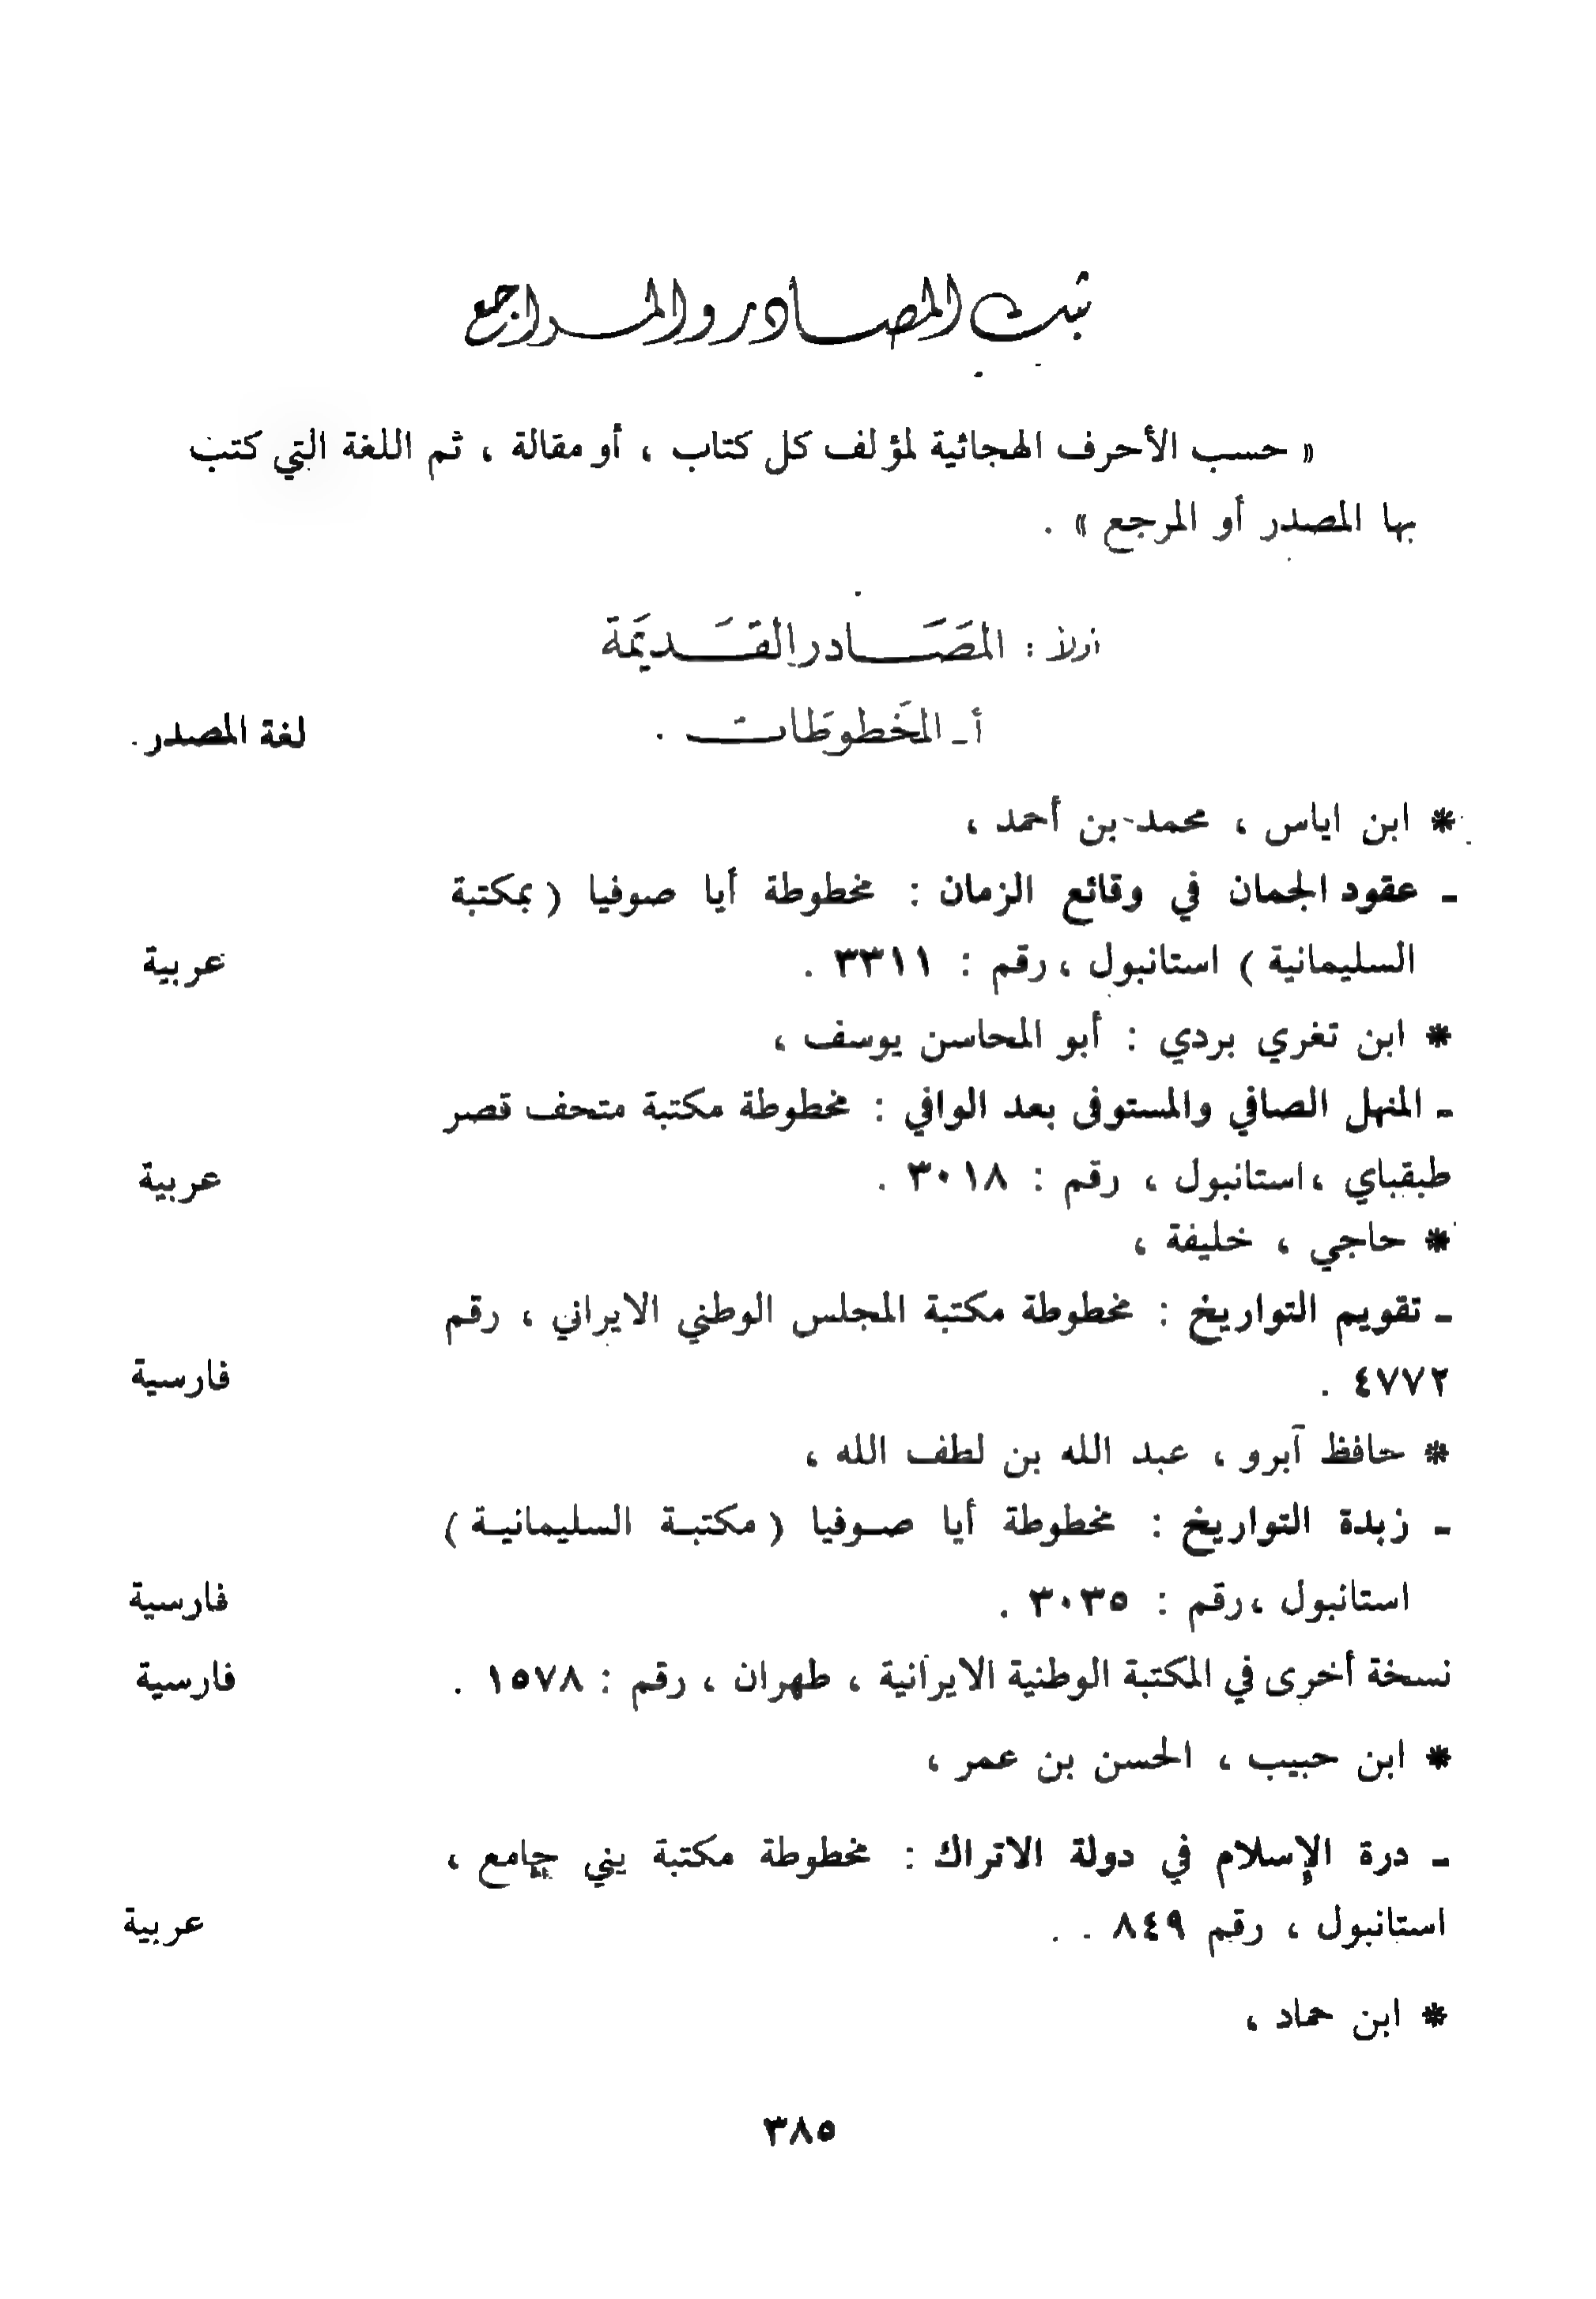 ثبت المصادر والمراجع
« حسب الأحرف الهجائية لمؤلف كل كتاب ، أو مقالة ، ثم اللغة التي كتب
بها المصدر أو المرجع » .
أولاً : المصَادر القَديَمة
أ ـ المخَطوطَات .
لغة المصدر .
* ابن اياس ، محمد بن أحمد ،
ـ عقود الجمان في وقائع الزمان : مخطوطة أيا صوفيا ( بمكتبة
السليمانية ) استانبول ، رقم : ٣٣١١ . عربية
* ابن تغري بردي : أبو المحاسن يوسف ،
ـ المنهل الصافي والمستوفى بعد الوافي : مخطوطة مكتبة متحف قصر
طبقباي ، استانبول ، رقم : ٣٠١٨ . عربية
* حاجي ، خليفة ،
ـ تقويم التواريخ : مخطوطة مكتبة المجلس الوطني الايراني ، رقم
٤٧٧٢ . فارسية
* حافظ آبرو ، عبد الله بن لطف الله ،
ـ زبدة التواريخ : مخطوطة أيا صوفيا ( مكتبة السليمانية )
استانبول ، رقم : ٣٠٣٥ . فارسية
نسخة أخرى في المكتبة الوطنية الايرانية ، طهران ، رقم : ١٥٧٨ . فارسية
* ابن حبيب ، الحسن بن عمر ،
ـ درة الإسلام في دولة الاتراك : مخطوطة مكتبة يني جامع ،
استانبول ، رقم ٨٤٩ . . عربية
* ابن حماد ،
٣٨٥